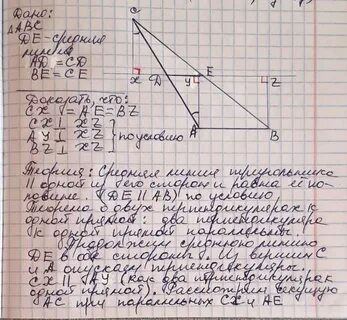 Дано:
△ABC
DE-средняя
линия
AD = CD
BE = CE
C
X
D
У
E
Z
A
B
Доказать, что:
CX = AE = BZ
CX ⊥ XZ
AУ ⊥ XZ } по условию
BZ ⊥ XZ
Теория: Средняя линия треугольника
|| одной из его сторон и равна её по-
ловине. (DE || AB) по условию
Теорема о двух перпендикулярах к
одной прямой: два перпендикуляра
к одной прямой параллельны.
Продолжим среднюю линию
DE в обе стороны. Из вершин C
и A опускаем перпендикуляры.
CX || AУ (как два перпендикуляра к
одной прямой). Рассмотрим секущую
AC при параллельных CX и AE